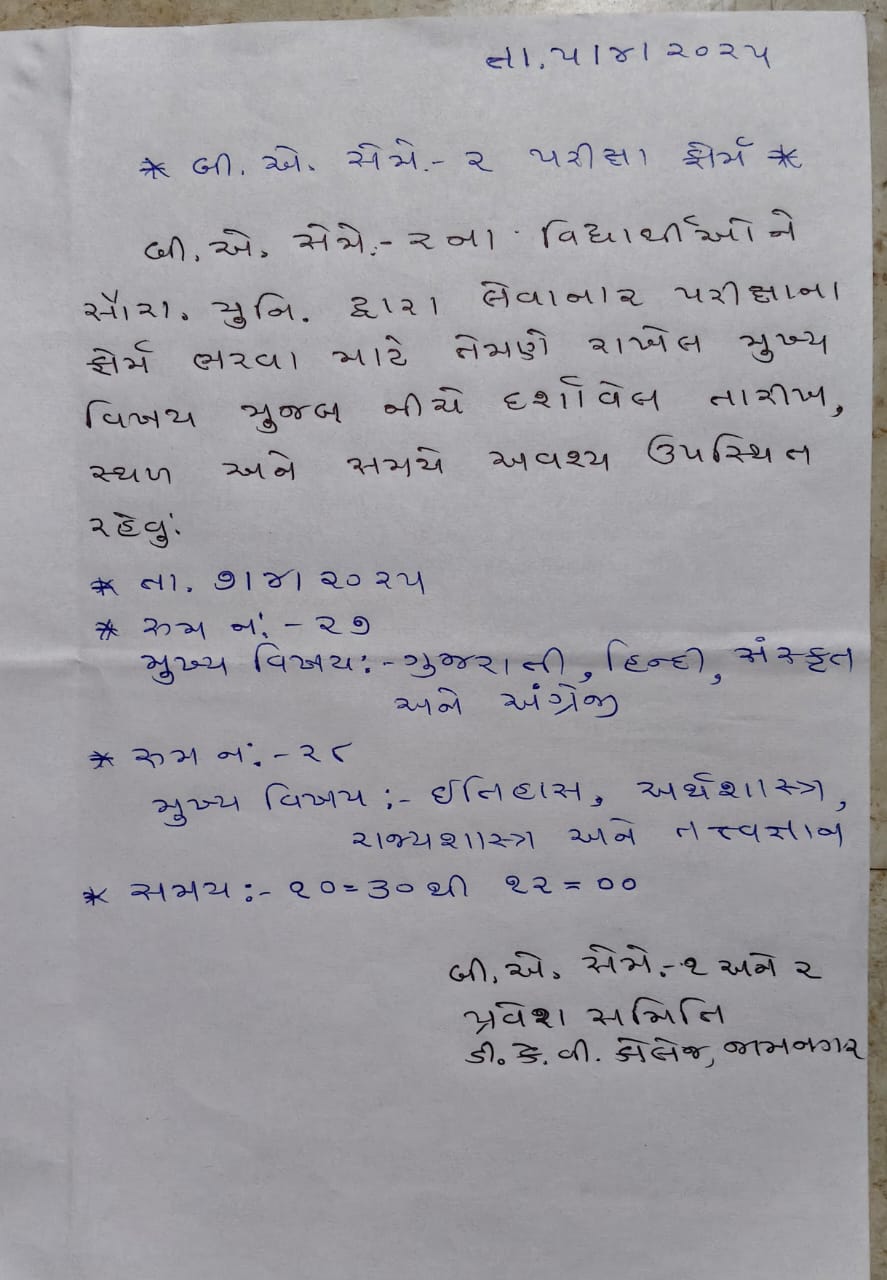 તા. ૫/૪/૨૦૨૫
* બી. એ. સેમે.- ૨ પરીક્ષા ફોર્મ *
બી. એ. સેમે.- ૨ના વિદ્યાર્થીઓને
સૌરા. યુનિ. દ્વારા લેવાનાર પરીક્ષાના
ફોર્મ ભરવા માટે તેમણે રાખેલ મુખ્ય
વિષય મુજબ નીચે દર્શાવેલ તારીખ,
સ્થળ અને સમયે અવશ્ય ઉપસ્થિત
રહેવું.
* તા. ૭/૪/૨૦૨૫
* રુમ નં. - ૨૭
મુખ્ય વિષય :- ગુજરાતી, હિન્દી, સંસ્કૃત
અને અંગ્રેજી
* રુમ નં. - ૨૮
મુખ્ય વિષય :- ઈતિહાસ, અર્થશાસ્ત્ર,
રાજ્યશાસ્ત્ર અને તત્ત્વજ્ઞાન
* સમય :- ૧૦=૩૦ થી ૧૨=૦૦
બી. એ. સેમે.-૧ અને ૨
પ્રવેશ સમિતિ
ડી. કે. વી. કોલેજ, જામનગર